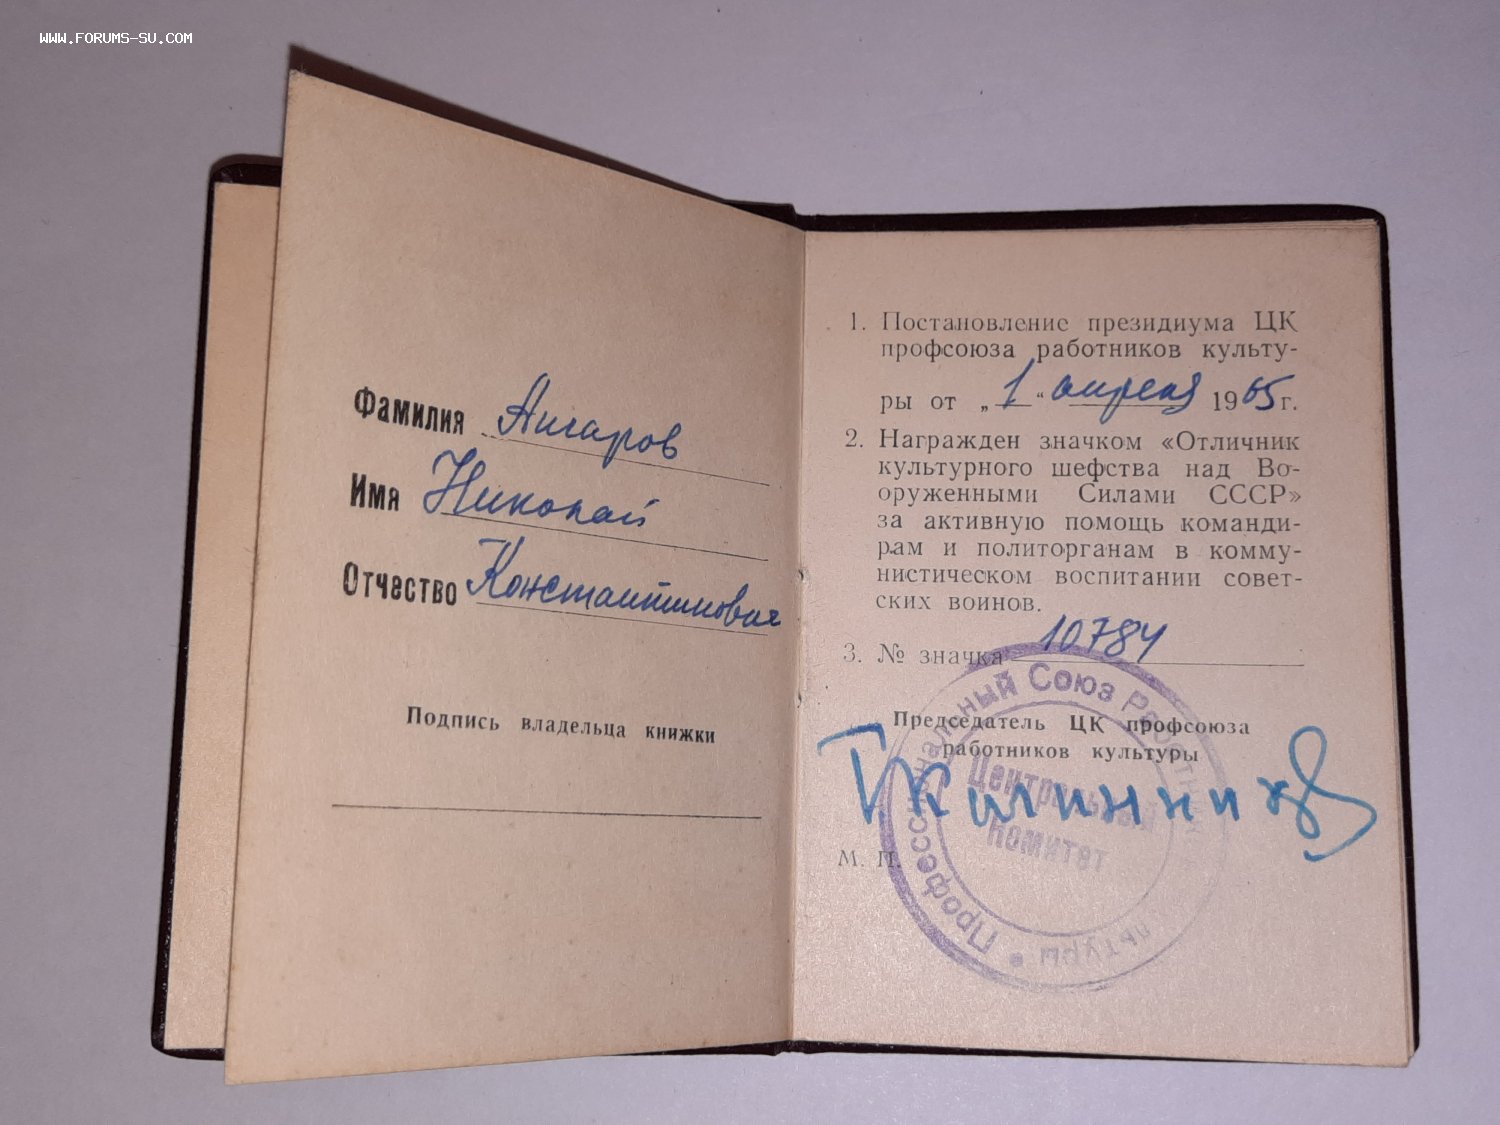 WWW.FORUMS-SU.COM
Фамилия Ансаров
Имя Николай
Отчество Константинович
Подпись владельца книжки
1. Постановление президиума ЦК
профсоюза работников культу-
ры от „1“ апреля 1965г.
2. Награжден значком «Отличник
культурного шефства над Во-
оруженными Силами СССР»
за активную помощь команди-
рам и политорганам в комму-
нистическом воспитании совет-
ских воинов.
3. № значка 10784
Председатель ЦК профсоюза
работников культуры
М. П.
Профессиональный Союз Работник льтуры
Центральный
Комитет